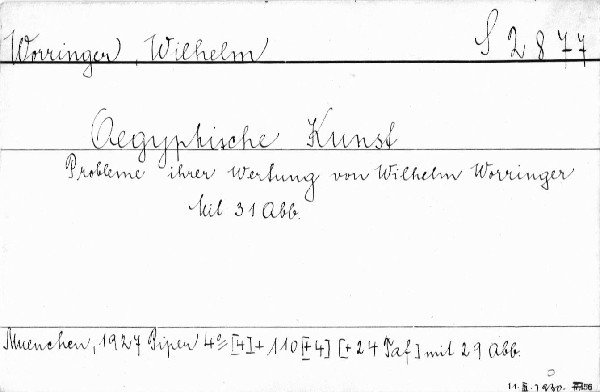 Worringer, Wilhelm S 2877
Aegyptische Kunst
Probleme ihrer Wertung von Wilhelm Worringer
Mit 31 Abb.
Muenchen, 1927 Piper 4° [4]+110[+4] [+24 Taf] mit 29 Abb.